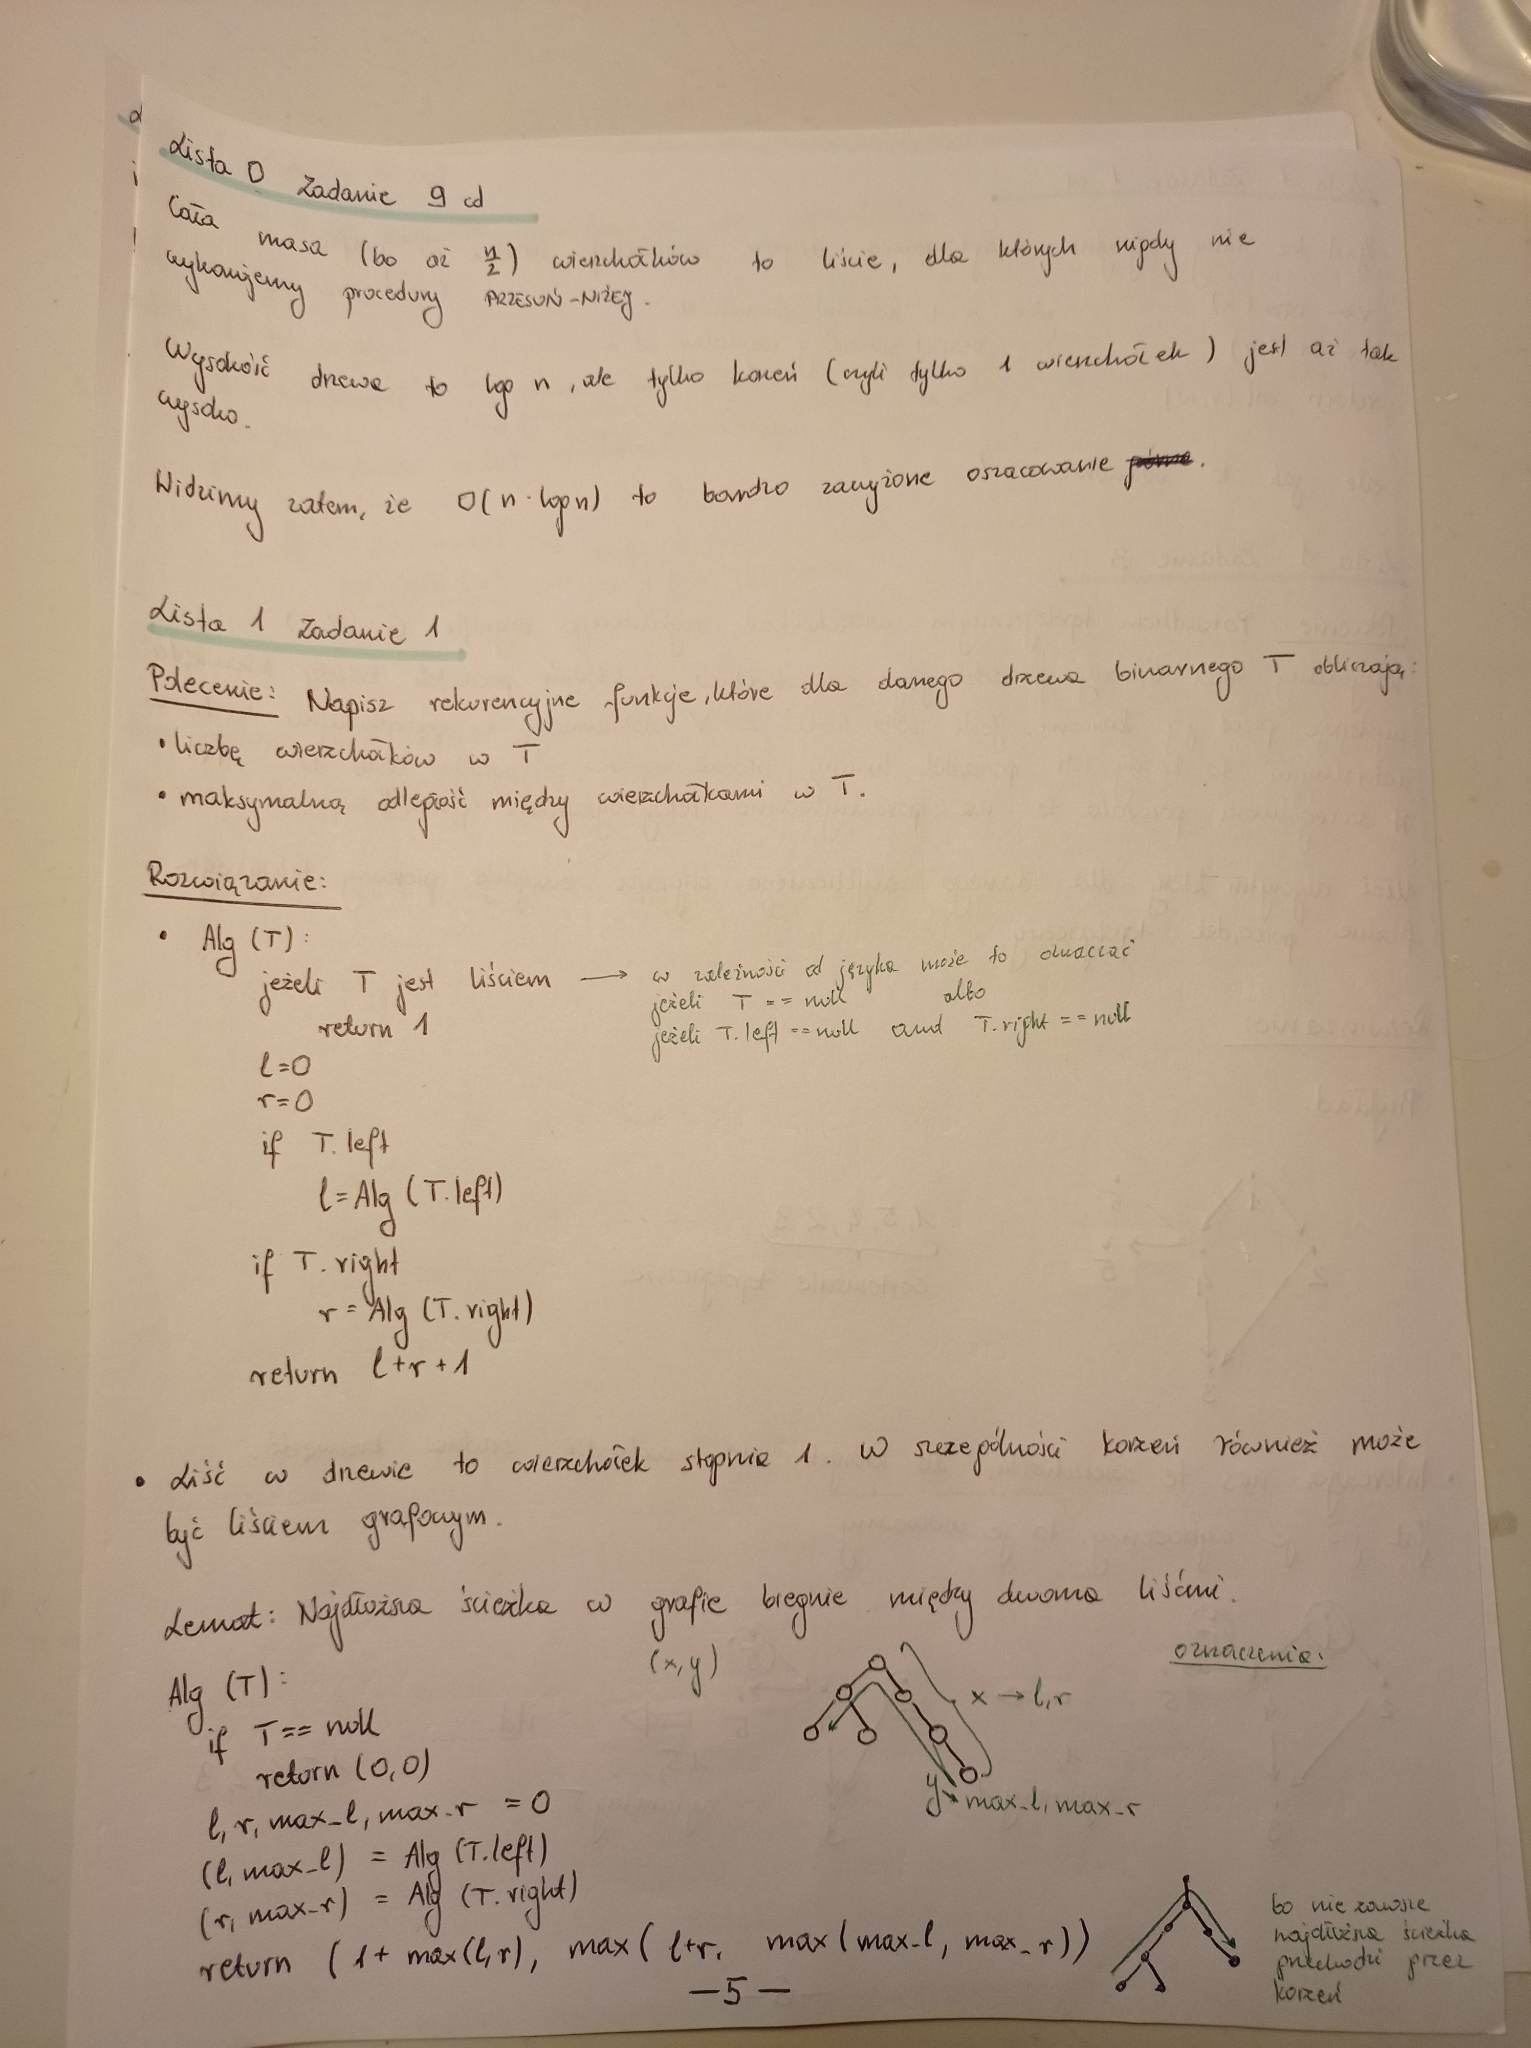 Lista 0 Zadanie 9 cd
Cała masa (bo aż n/2) wierzchołków to liście, dla których nigdy nie
wykonujemy procedury PRZESUŃ-NIŻEJ.
Wysokość drzewa to log n, ale tylko korzeń (czyli tylko 1 wierzchołek) jest aż tak
wysoko.
Widzimy zatem, że O(n·log n) to bardzo zawyżone oszacowanie.
Lista 1 Zadanie 1
Polecenie: Napisz rekurencyjne funkcje, które dla danego drzewa binarnego T obliczają:
• liczbę wierzchołków w T
• maksymalną odległość między wierzchołkami w T.
Rozwiązanie:
• Alg (T):
jeżeli T jest liściem → w zależności od języka może to oznaczać
jeżeli T == null albo
return 1
jeżeli T.left == null and T.right == null
l=0
r=0
if T.left
l=Alg (T.left)
if T.right
r=Alg (T.right)
return l+r+1
• Liść w drzewie to wierzchołek stopnia 1. W szczególności korzeń również może
być liściem grafowym.
Lemat: Najdłuższa ścieżka w grafie biegnie między dwoma liśćmi.
(x,y)
oznaczenia:
Alg (T):
x → l,r
if T== null
return (0,0)
y → max_l, max_r
l, r, max_l, max_r = 0
(l, max_l) = Alg (T.left)
(r, max_r) = Alg (T.right)
return (1+ max(l,r), max( l+r, max(max_l, max_r))
bo nie zawsze
najdłuższa ścieżka
przechodzi przez
korzeń
—5—